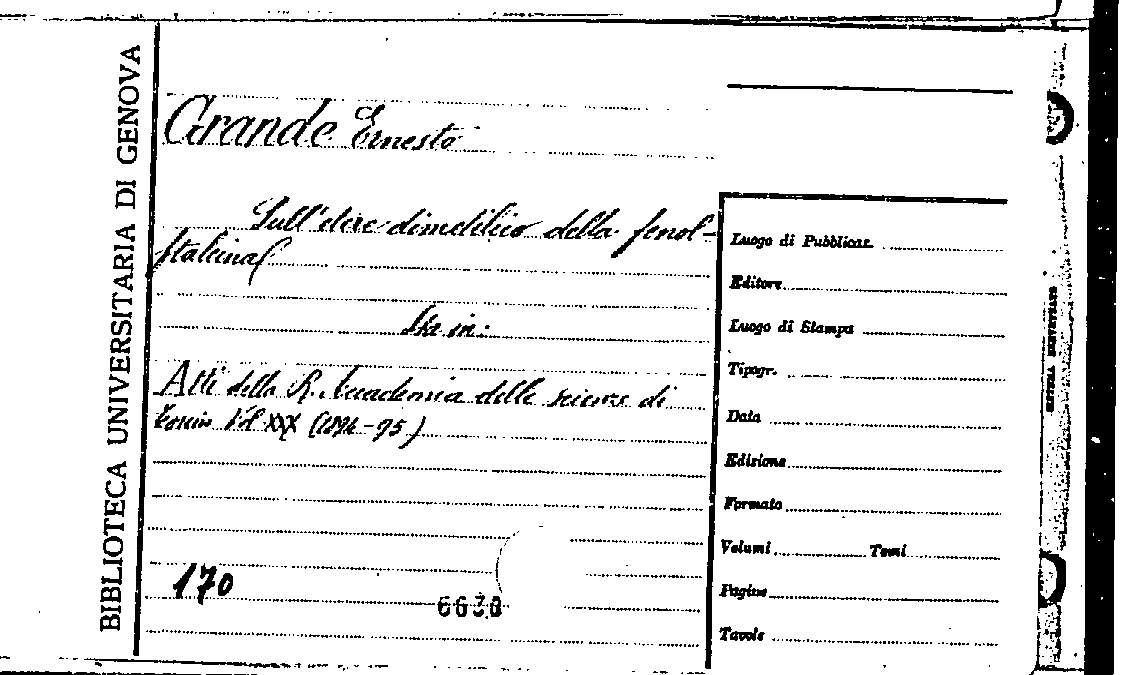 BIBLIOTECA UNIVERSITARIA DI GENOVA
Grande Ernesto
Sull'etere dimetilico della fenol-
ftaleina
Sta in:
Atti della R. Accademia delle scienze di
Torino Vol XXX (1894-95)
170
6630
Luogo di Pubblicaz.
Editore
Luogo di Stampa
Tipogr.
Data
Edizione
Formato
Volumi Tomi
Pagine
Tavole